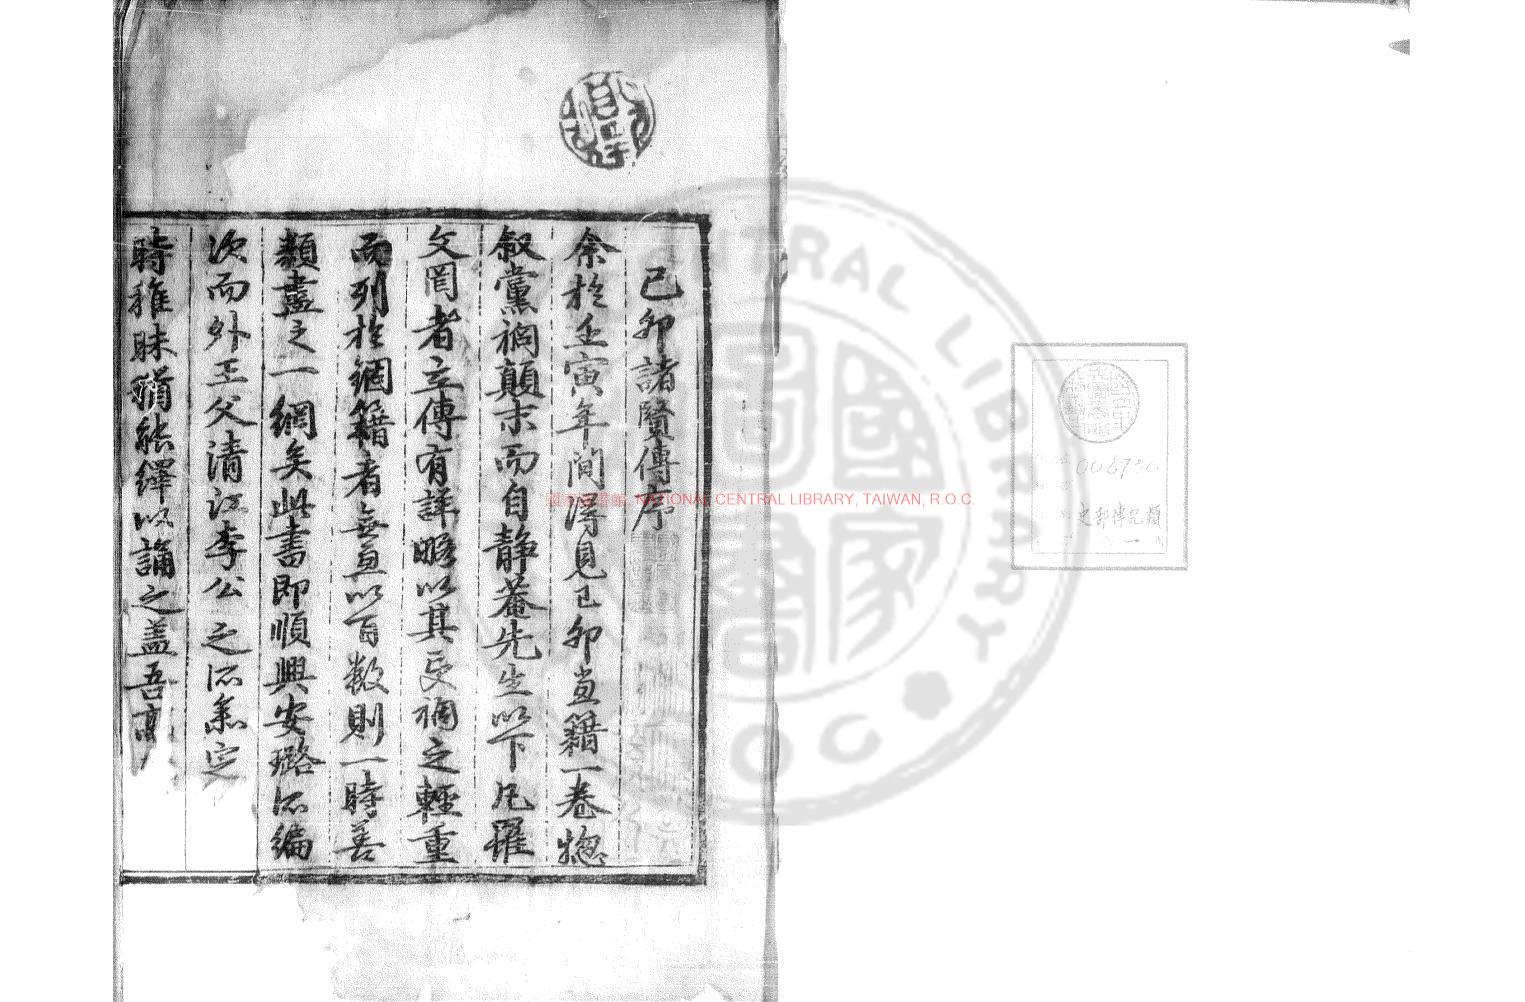 己卯諸賢傳序
余於壬寅年間得見己卯黨籍一卷摠
叙黨禍顛末而自靜菴先生以下凡羅
文罔者立傳有詳略以其受禍之輕重
而列於網籍者無慮以百數則一時善
類盡之一網矣此書即順興安璐所編
次而外王父清江李公之所
時稚昧猶能繹以誦之盖吾
國家圖書館, NATIONAL CENTRAL LIBRARY, TAIWAN, R.O.C.
CENTRAL LIBRARY
ROC
006730
史部傳記類
一